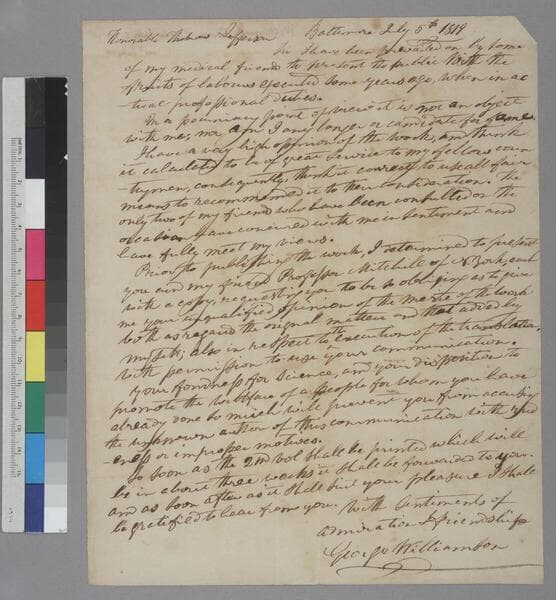 Honorable Thomas Jefferson Baltimore July 5th 1819
Sir I have been prevailed on by some
of my medical friends to present the public with the
fruits of labours executed some years ago, when in ac
tual professional duties.
In a pecuniary point of view it is not an object
with me; nor am I any longer a candidate for fame.
I have a very high opinion of the work, and think
it calculated to be of great service to my fellow coun
trymen, consequently, think it correct to use all fair
means to recommend it to their consideration. The
only two of my friends who have been consulted on the
occasion have concured with me in sentiment and
have fully meet my views.
Prior to publishing the work, I determined to present
you and my friend Professor Mitchill of N York, each
with a copy, requesting you to be so obliging as to give
me your unqualified opinion of the merits of the work
both as regards the original matter and that added by
myself; also in respect to the execution of the translation,
with permission to use your communication.
Your fondness for Science, and your disposition to
promote the wellfare of a people for whom you have
already done so much will prevent you from accusing
the unknown author of this communication with
or improper motives.
So soon as the 2nd vol shall be printed which will
be in about three weeks it shall be forwarded to you.
and as soon after as it shall suit your pleasure I shall
be gratified to hear from you. With Sentiments of
admiration & friendship
George Williamson